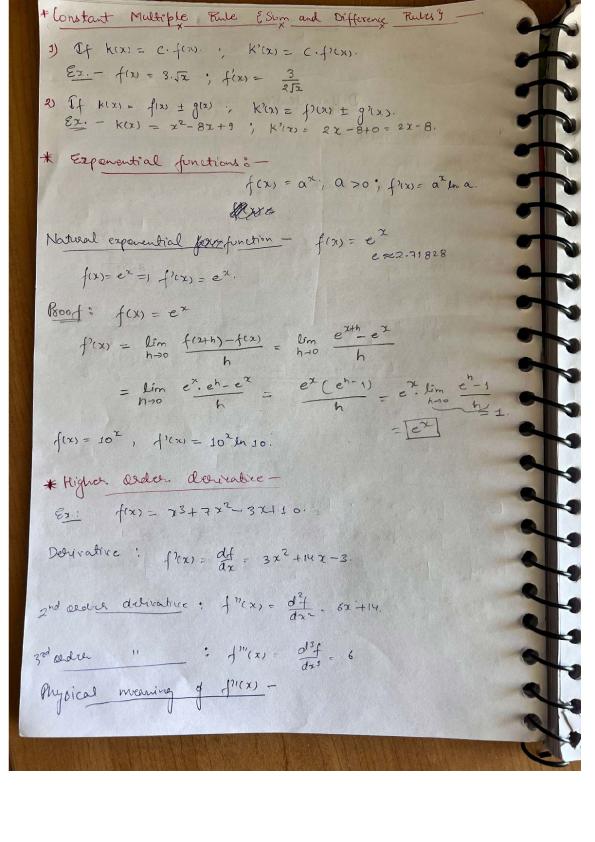 * Constant Multiple Rule {Sum and Difference Rules} —
1) If k(x) = c. f(x). ; k'(x) = c. f'(x).
Ex. - f(x) = 3.√x ; f'(x) = 3/2√x
2) If k(x) = f(x) ± g(x) ; k'(x) = f'(x) ± g'(x).
Ex. - k(x) = x² - 8x + 9 ; k'(x) = 2x - 8 + 0 = 2x - 8.
* Exponential functions :—
f(x) = aˣ, a > 0 ; f'(x) = aˣ ln a.
Natural exponential function — f(x) = eˣ
e ≈ 2.71828
f(x) = eˣ =, f'(x) = eˣ.
Proof : f(x) = eˣ
f'(x) = lim h→0 f(x+h) - f(x) / h = lim h→0 eˣ⁺ʰ - eˣ / h
= lim h→0 eˣ. eʰ - eˣ / h = eˣ (eʰ - 1) / h = eˣ. lim h→0 eʰ - 1 / h = 1.
= eˣ
f(x) = 10ˣ, f'(x) = 10ˣ ln 10.
* Higher order derivative —
Ex: f(x) = x³ + 7x² - 3x + 10.
Derivative : f'(x) = df/dx = 3x² + 14x - 3.
2nd order derivative : f''(x) = d²f/dx² = 6x + 14.
3rd order " : f'''(x) = d³f/dx³ = 6
Physical meaning of f''(x) —